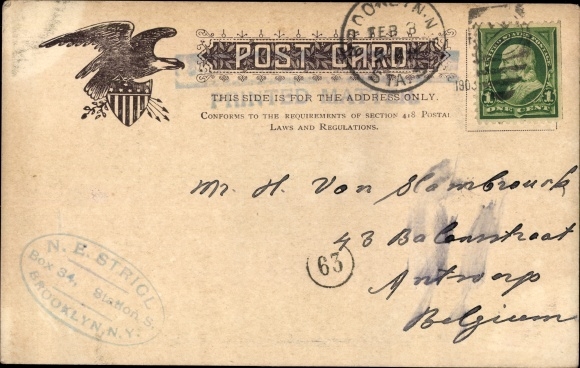 BROOKLYN, N.Y.
FEB 3
STA.
1903
POST CARD
PRINTED MATTER
THIS SIDE IS FOR THE ADDRESS ONLY.
CONFORMS TO THE REQUIREMENTS OF SECTION 418 POSTAL
LAWS AND REGULATIONS.
1 ONE CENT 1
Mr. H. Von Slambrouck
43 Balanstraat
63
Antwerp
Belgium
N. E. STRIGL
Box 34, Station S.
BROOKLYN, N.Y.